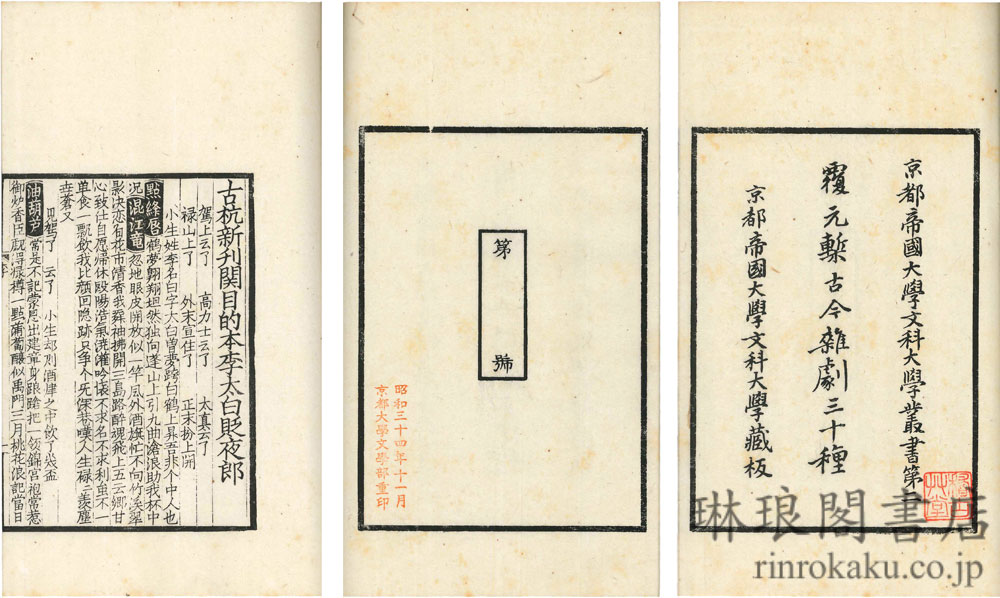 京都帝國大學文科大學叢書第二
覆元槧古今雜劇三十種
京都帝國大學文科大學藏板
第 號
昭和三十四年十一月
京都大學文學部重印
古杭新刊関目的本李太白貶夜郎
駕上云了 高力士云了 太真云了
禄山上了 外末宣住了 正末扮上開
小生姓李名白字太白曽夢跨白鶴上昇吾非个中人也
點絳唇 鶴夢翱翔坦然独向蓬山上引九曲滄浪助我杯中
况 混江竜 忽地眼皮開放似一竿風外酒旗忙不向竹溪翠
影决恋花市清香我舞袖拂開三島路醉魂飛上五云鄉甘
心致仕自愿帰休 浩氣 吟懷不求名不求利虽不一
单食一瓢飲我比顏回隐跡只争个无深巷嘆人生禄二羨塵
見駕了 云了 小生却則酒肆之中飲了幾盃
油葫芦 常是不記蒙恩出建章身踉蹌把一領錦宫袍常惹
御炉香臣覷得緑樽一點蒲萄釀似禹門三月桃花浪記當日
琳琅閣書店
rinrokaku.co.jp